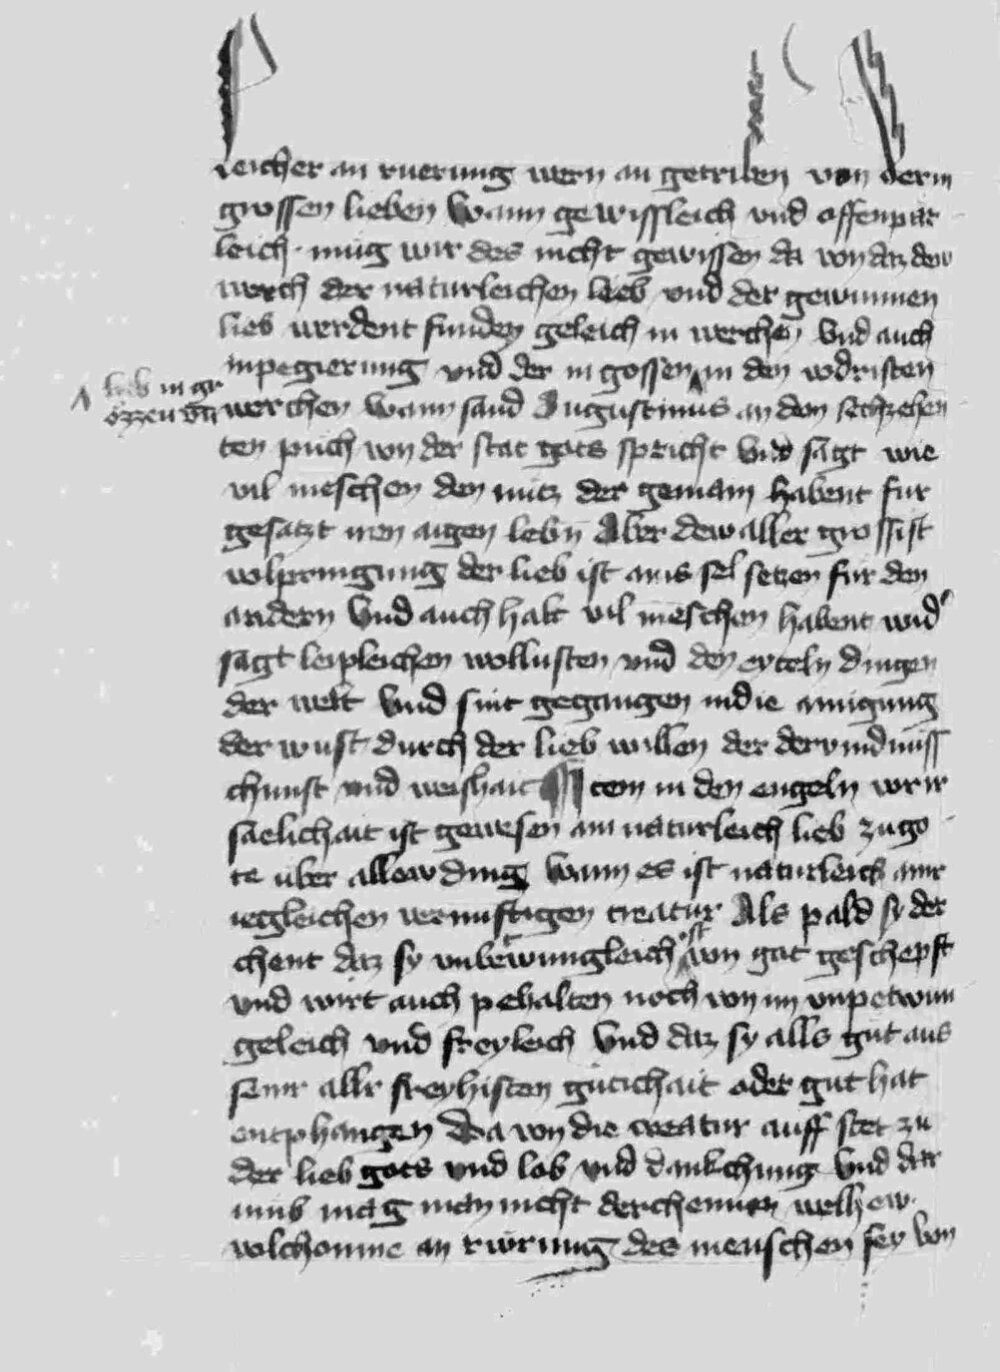 leicher an ruerung wern an getriben von derin
grossen lieben Wann gewissleich vnd offenpar
leich mug wir des nicht gewissen da von daz dew
werch der naturleichen lieb vnd der gewunnen
lieb werdent funden geleich in werchen Vnd auch
inpegierung vnd der in gossen in den vodristen
lieb in gr
özzen vn̄
werchen Wann sand Augustinus an dem sechzehen
ten puch von der stat gots spricht Vnd sagt wie
vil meschen den nutz der gemain habent fur
gesatzt iren aigen lebn̄ Aber dew aller grossist
volpringung der lieb ist ains sel setzen fur den
andern Vnd auch halt vil meschen habent wid
sagt leipleichen wollusten vnd den eyteln dingen
der welt Vnd sint gegangen indie ainigung
der wust durch der lieb willen der dervindnuss
chunst vnd weishait Item in den engeln vor ir
saelichait ist gewesen ain naturleich lieb zu go
te uber allew ding Wann es ist naturleich ainr
iegleichen vernuftigen creatur Als pald sy der
chent daz sy vnbetwungleich ist von got geschepft
vnd wirt auch pehalten noch von im vnpetwun
geleich vnd freyleich Vnd daz sy alls gut aus
seinr allr freyhisten gutichait oder gut hat
entphangen Da von die creatur auff stet zu
der lieb gots vnd lob vnd dankchung Vnd dar
umb mag man nicht derchennen welhew
volchomne an rurung des menschen sey von